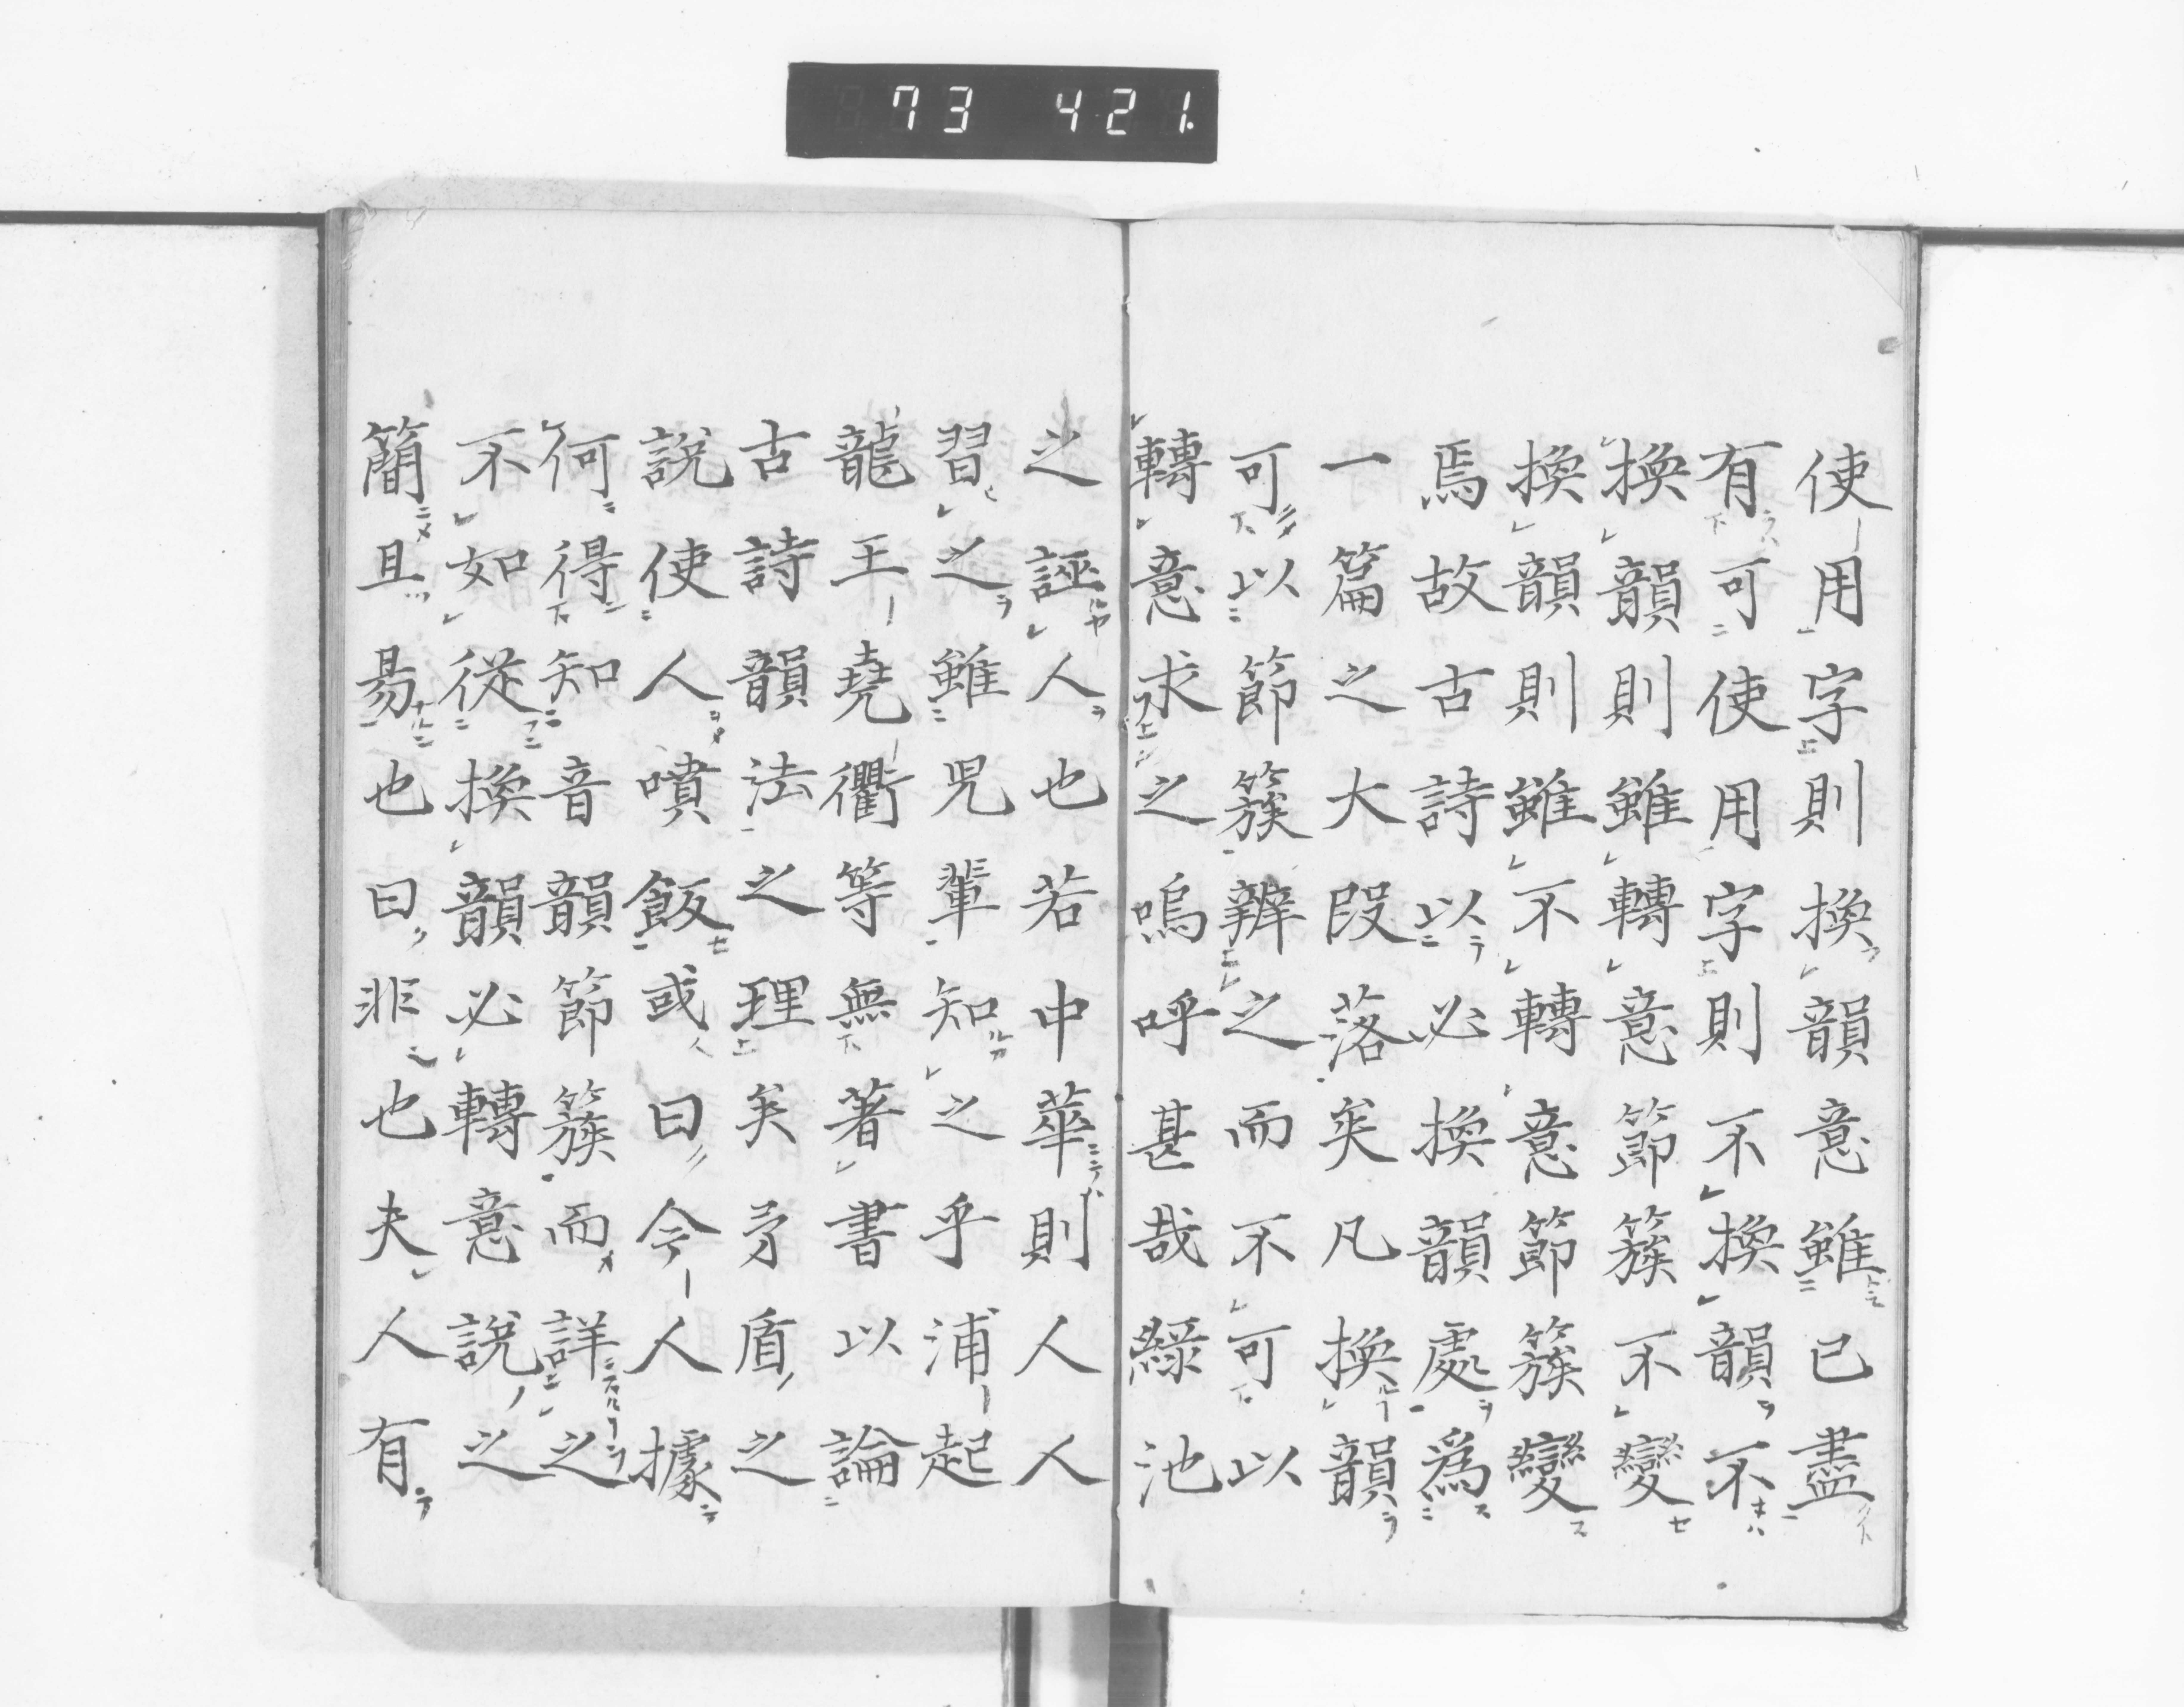 73 421.
使用字則換韻意雖已盡
有可使用字則不換韻不
換韻則雖轉意節簇不變
換韻則雖不轉意節簇變
焉故古詩以必換韻處爲
一篇之大段落矣凡換韻
可以節簇辨之而不可以
轉意求之嗚呼甚哉綠池
之誣人也若中華則人人
習之雖児輩知之乎浦起
龍王堯衢等無著書以論
古詩韻法之理矣矛盾之
說使人噴飯或曰今人據
何得知音韻節簇而詳之
不如從換韻必轉意說之
簡且易也曰非也夫人有